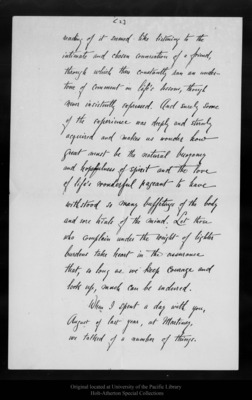 (2)
reading of it seemed like listening to the
intimate and chosen conversation of a friend,
through which there constantly ran an under-
tone of comment on life's lessons, though
never insistently expressed. And surely some
of the experience was deeply and
acquired and makes us wonder how
great must be the natural buoyancy
and hopefulness of spirit and the love
of life's wonderful pageant to have
withstood so many buffetings of the body
and sore trials of the mind. Let those
who complain under the weight of lighter
burdens take heart in the assurance
that, so long as we keep courage and
look up, much can be endured.
When I spent a day with you,
August of last year, at Martinez,
we talked of a number of things.
Original located at University of the Pacific Library
Holt-Atherton Special Collections